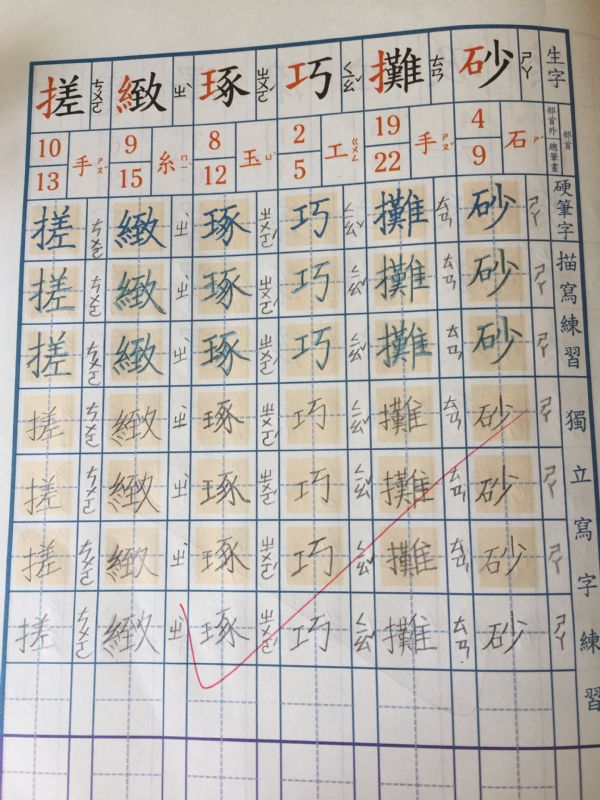 生字 砂 ㄕㄚ 攤 ㄊㄢ 巧 ㄑㄧㄠˇ 琢 ㄓㄨㄛˊ 緻 ㄓˋ 搓 ㄘㄨㄛ
部首 部首外 總筆畫 石 ㄕˊ 4 9 手 ㄕㄡˇ 19 22 工 ㄍㄨㄥ 2 5 玉 ㄩˋ 8 12 糸 ㄇㄧˋ 9 15 手 ㄕㄡˇ 10 13
硬筆字描寫練習
砂 ㄕㄚ 攤 ㄊㄢ 巧 ㄑㄧㄠˇ 琢 ㄓㄨㄛˊ 緻 ㄓˋ 搓 ㄘㄨㄛ
砂 ㄕㄚ 攤 ㄊㄢ 巧 ㄑㄧㄠˇ 琢 ㄓㄨㄛˊ 緻 ㄓˋ 搓 ㄘㄨㄛ
砂 ㄕㄚ 攤 ㄊㄢ 巧 ㄑㄧㄠˇ 琢 ㄓㄨㄛˊ 緻 ㄓˋ 搓 ㄘㄨㄛ
獨立寫字練習
砂 ㄕㄚ 攤 ㄊㄢ 巧 ㄑㄧㄠˇ 琢 ㄓㄨㄛˊ 緻 ㄓˋ 搓 ㄘㄨㄛ
砂 ㄕㄚ 攤 ㄊㄢ 巧 ㄑㄧㄠˇ 琢 ㄓㄨㄛˊ 緻 ㄓˋ 搓 ㄘㄨㄛ
砂 ㄕㄚ 攤 ㄊㄢ 巧 ㄑㄧㄠˇ 琢 ㄓㄨㄛˊ 緻 ㄓˋ 搓 ㄘㄨㄛ
砂 ㄕㄚ 攤 ㄊㄢ 巧 ㄑㄧㄠˇ 琢 ㄓㄨㄛˊ 緻 ㄓˋ 搓 ㄘㄨㄛ